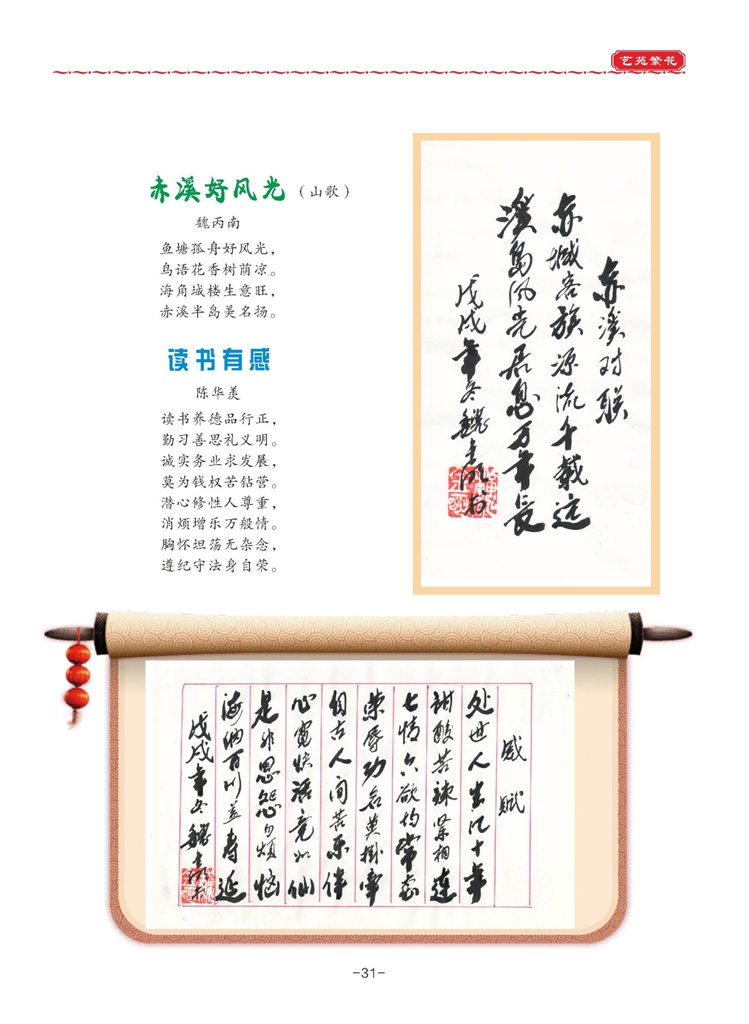 艺苑繁花
赤溪好风光（山歌）
魏丙南
鱼塘孤舟好风光，
鸟语花香树荫凉。
海角城楼生意旺，
赤溪半岛美名扬。
读书有感
陈华羡
读书养德品行正，
勤习善思礼义明。
诚实务业求发展，
莫为钱权苦钻营。
潜心修性人尊重，
消烦增乐万般情。
胸怀坦荡无杂念，
遵纪守法身自荣。
赤溪对联
赤城客族源流千载远
溪岛风光居息万年长
戊戌年冬魏
感赋
处世人生几十年
甜酸苦辣紧相连
七情六欲均常态
荣辱功名莫挂牵
自古人间苦乐伴
心宽快活竟如仙
是非恩怨勿烦恼
海纳百川益寿延
戊戌年冬魏
-31-